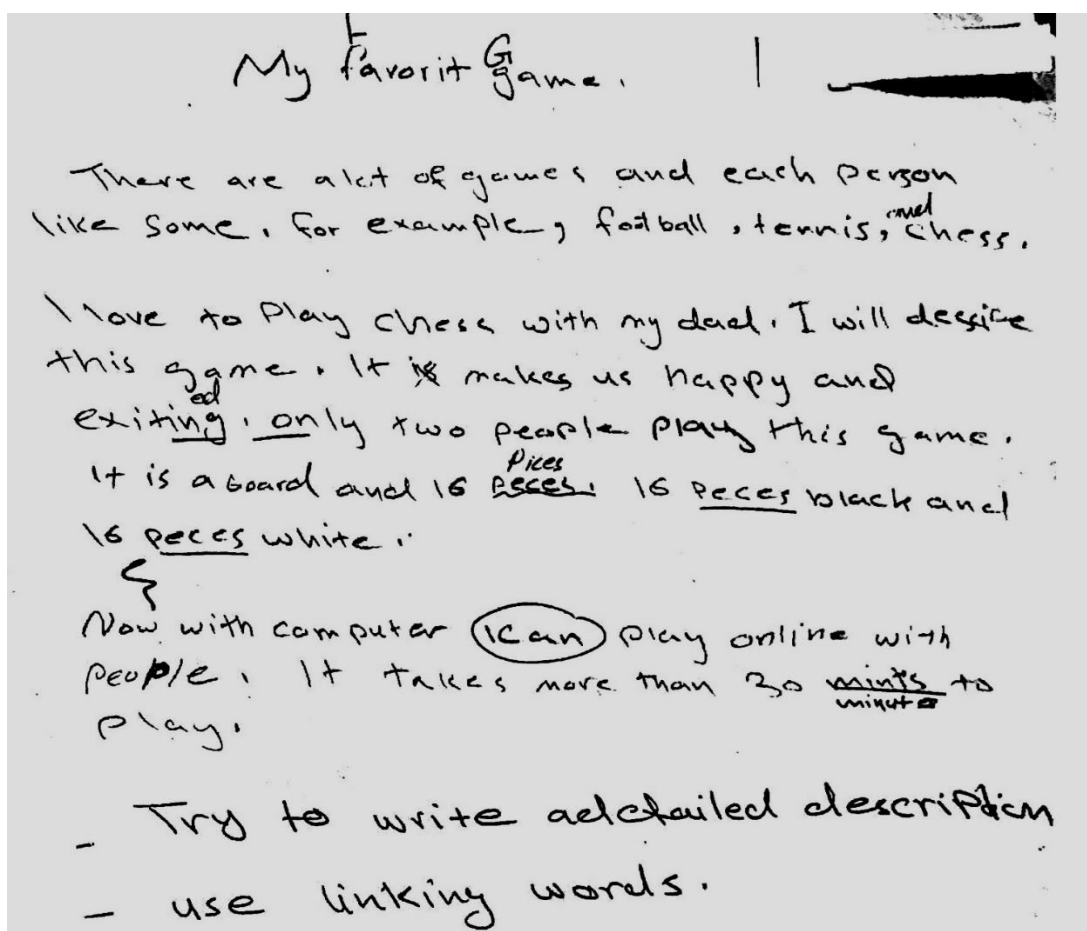 My favorit Game.
There are alot of games and each person
like some. for example, football, tennis, and chess.
I love to Play chess with my dad. I will
this game. It is makes us happy and
ed
exiting. only two people play this game.
Pices
It is a board and 16 peces. 16 peces black and
16 peces white.
Now with computer ican play online with
people. It takes more than 30 mints to
minute
play.
- Try to write adetailed description
- use linking words.